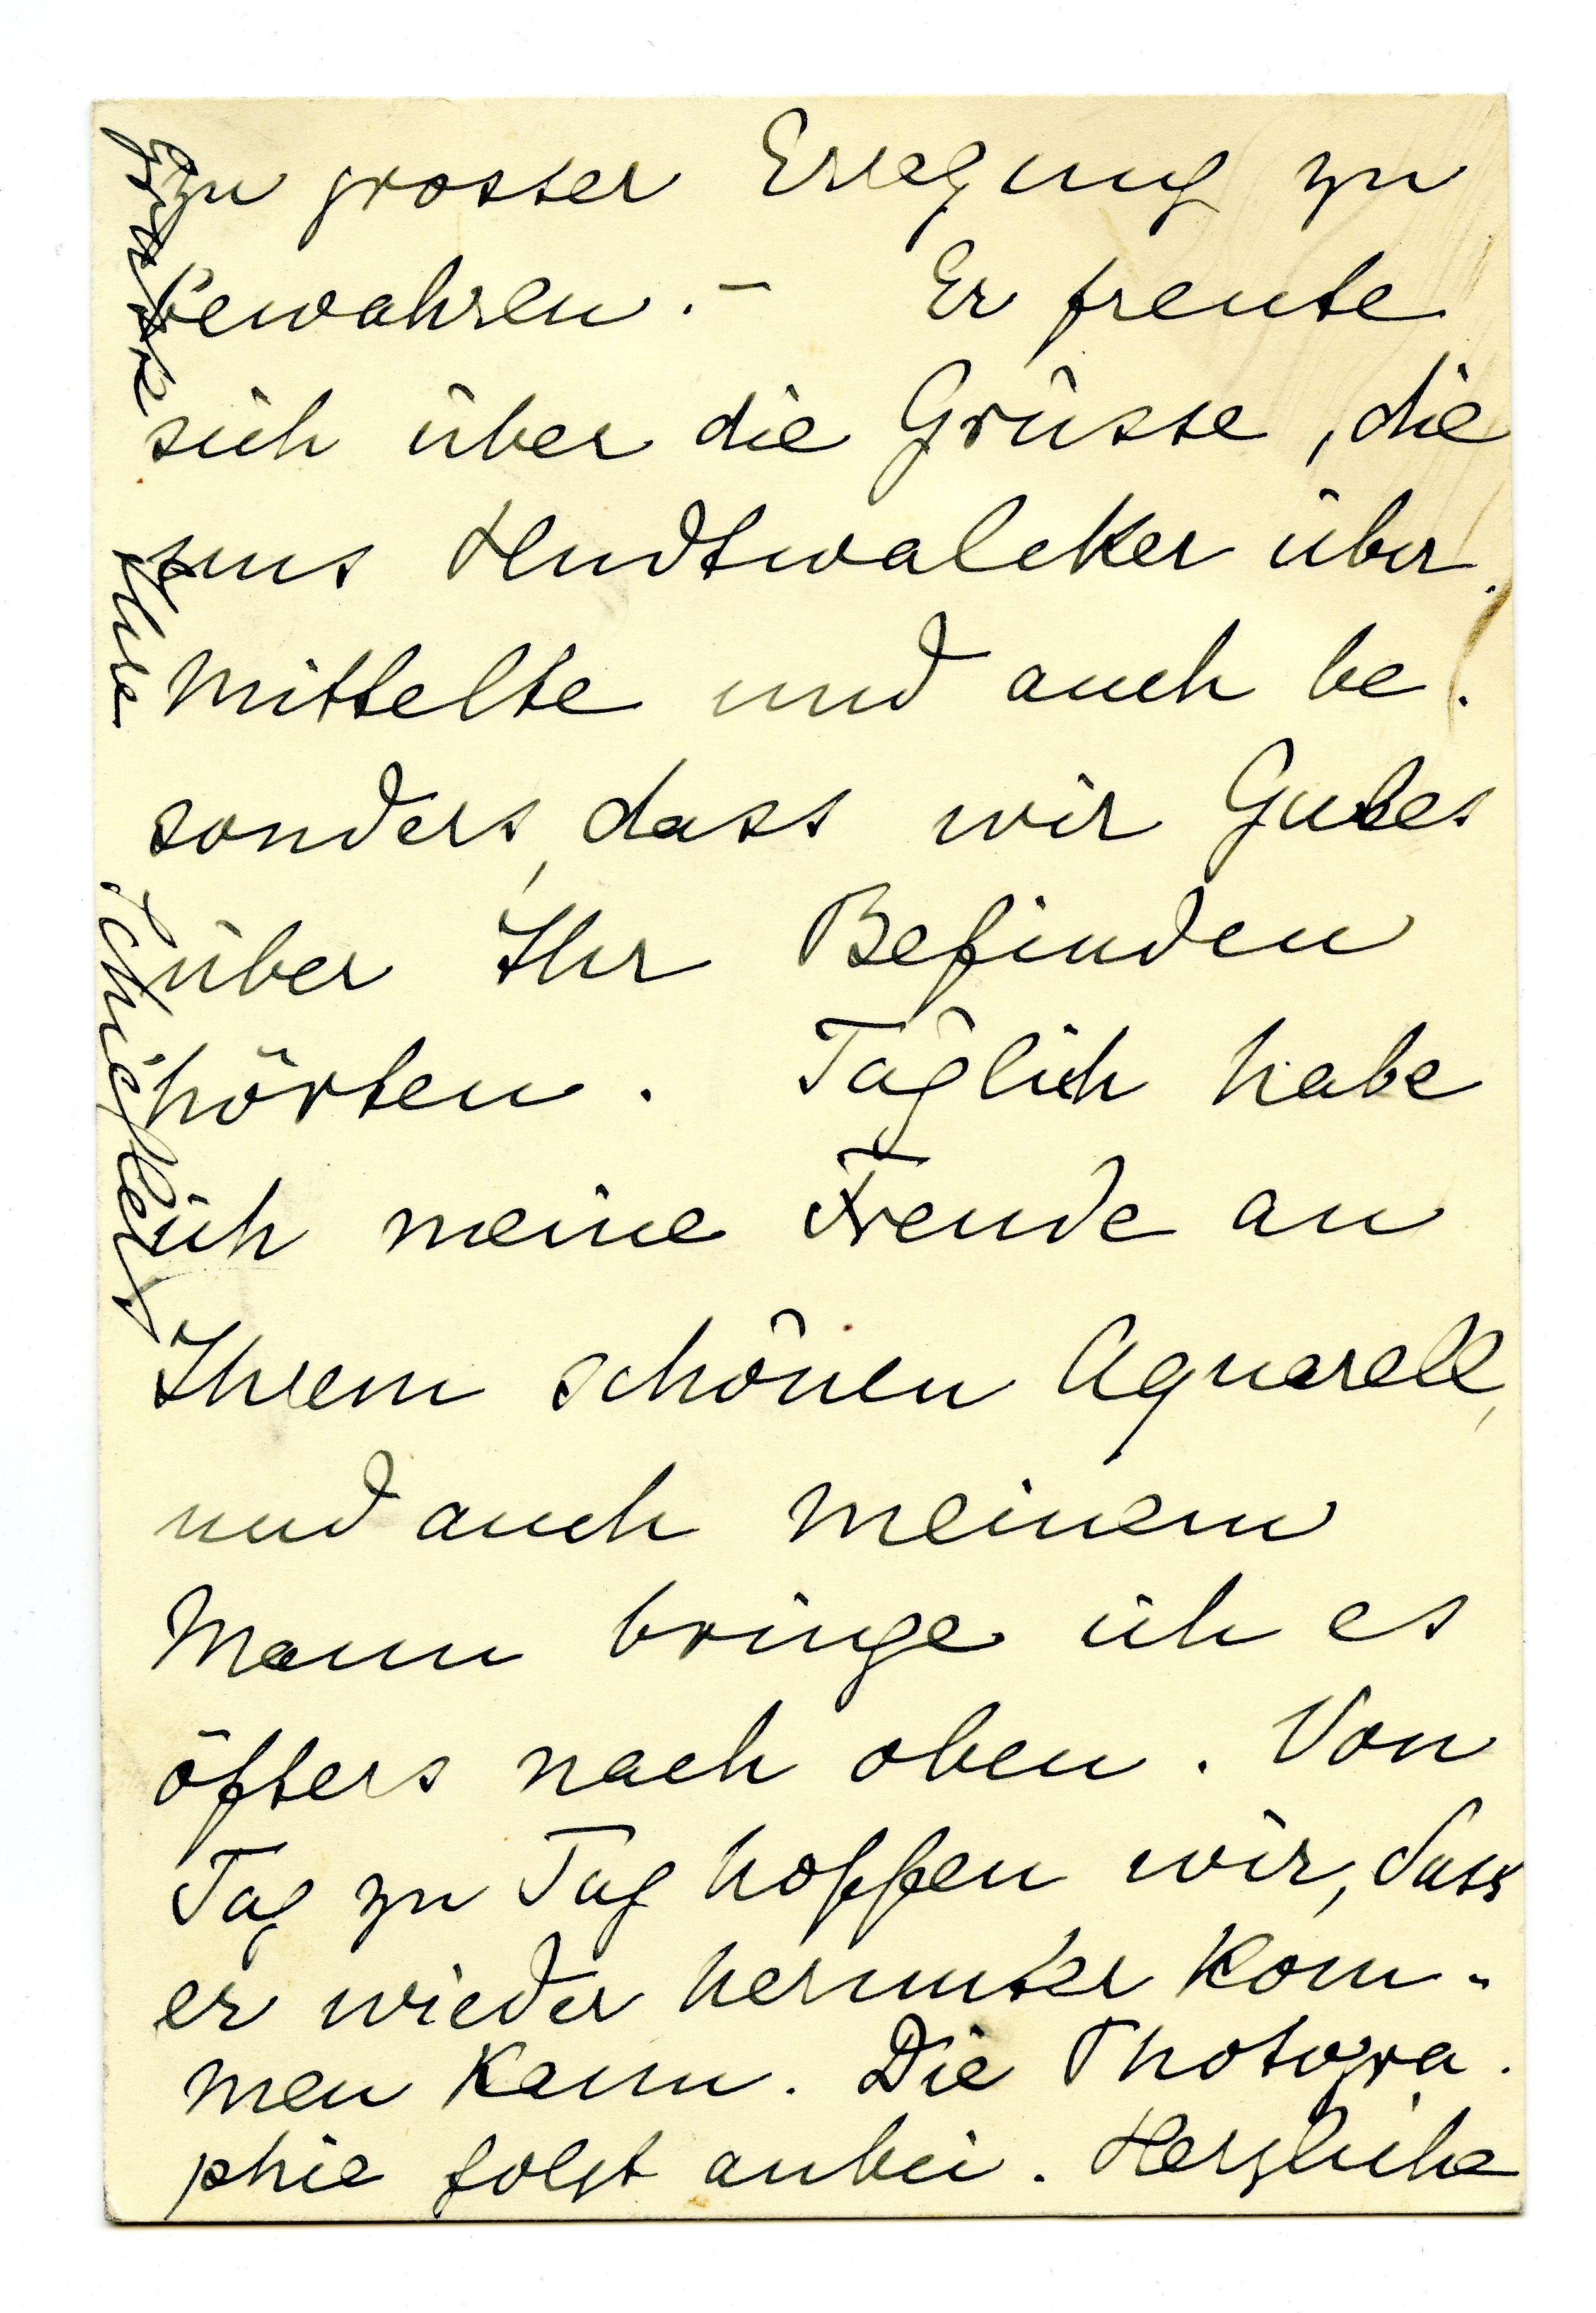 zu grosser Erregung zu
bewahren. – Er freute
sich über die Grüsse, die
uns Hudtwalcker über-
mittelte und auch be-
sonders, dass wir Gutes
über Ihr Befinden
hörten. Täglich habe
ich meine Freude an
Ihrem schönen Aquarell,
und auch meinem
Mann bringe ich es
öfters nach oben. Von
Tag zu Tag hoffen wir, dass
er wieder herunter kom-
men kann. Die Photogra-
phie folgt anbei. Herzliche
Grüsse
Ihre